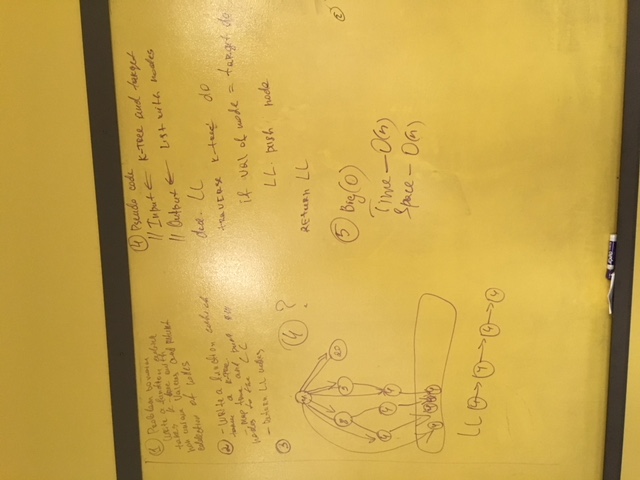 ① Problem Domain
write a function which
takes k-tree with
non unique values and return
collection of nodes
② - write a function which
take a k-tree
- map tree and push
nodes to the LL
- return LL nodes
③
④ ?
8 3 20
4 4 4
4 4 4 4
LL 4 → 4 → 4 → 4
④ Pseudo code
// Input ← K-Tree and target
// Output ← List with nodes
LL
traverse k-tree do
if val of node = target do
LL. push node
RETURN LL
⑤ Big(O)
Time — O(n)
Space — O(n)
EXPO